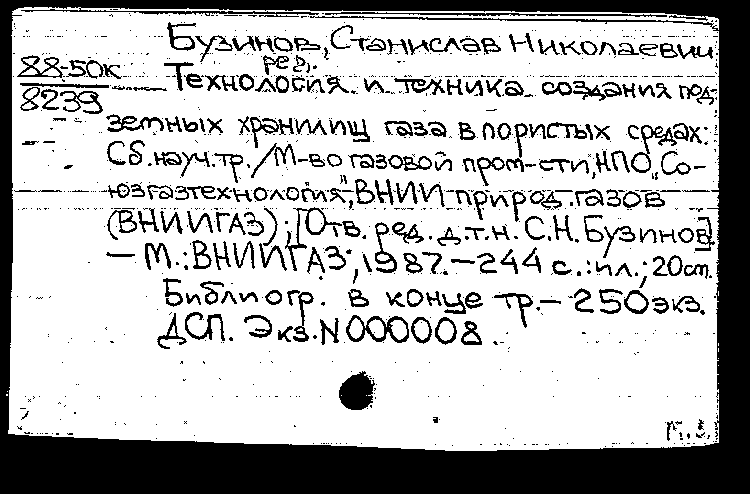 Бузинов, Станислав Николаевич
ред.
88-50к
8239
Технология и техника создания под-
земных хранилищ газа в пористых средах:
Сб. науч. тр. / М-во газовой пром-сти, НПО „Со-
юзгазтехнология", ВНИИ природ. газов
(ВНИИГАЗ); [Отв. ред. д.т.н. С.Н. Бузинов].
— М.: ВНИИГАЗ, 1987. — 244 с.: ил.; 20 см.
Библиогр. в конце тр. — 250 экз.
ДСП. Экз. N 000008.